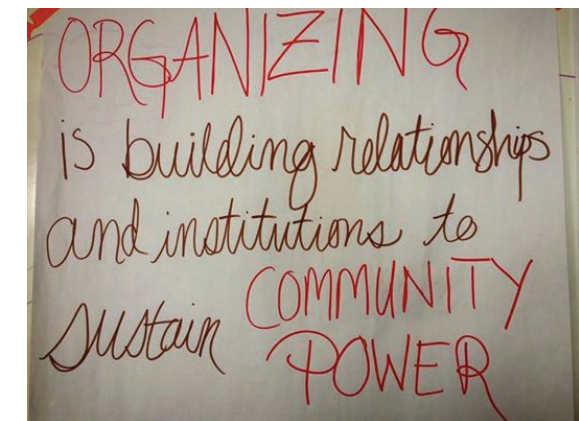 ORGANIZING
is building relationships
and institutions to
sustain COMMUNITY
POWER